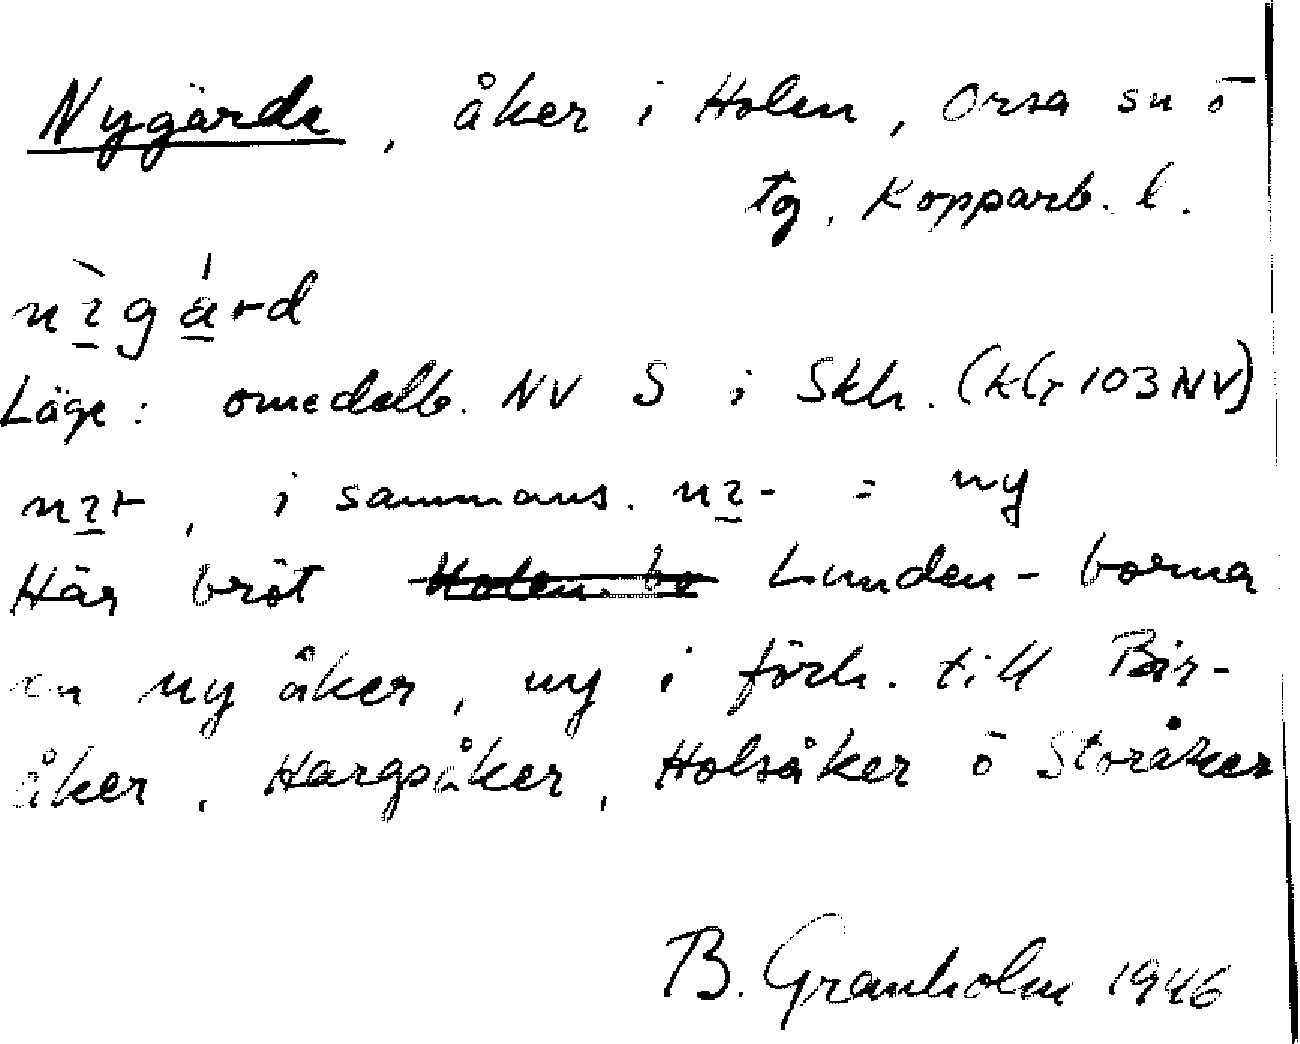 Nygärde, åker i Holen, Orsa sn o
tg, Kopparb. l.
nìgä́rd
Läge: omedelb. NV S i Skh. (Klr 103 NV)
nır, i sammans. nı- = ny
Här bröt Lunden-borna
en ny åker, ny i förh. till Bir-
åker, Hargsåker, Holsåker o Storåker
B. Granholm 1946